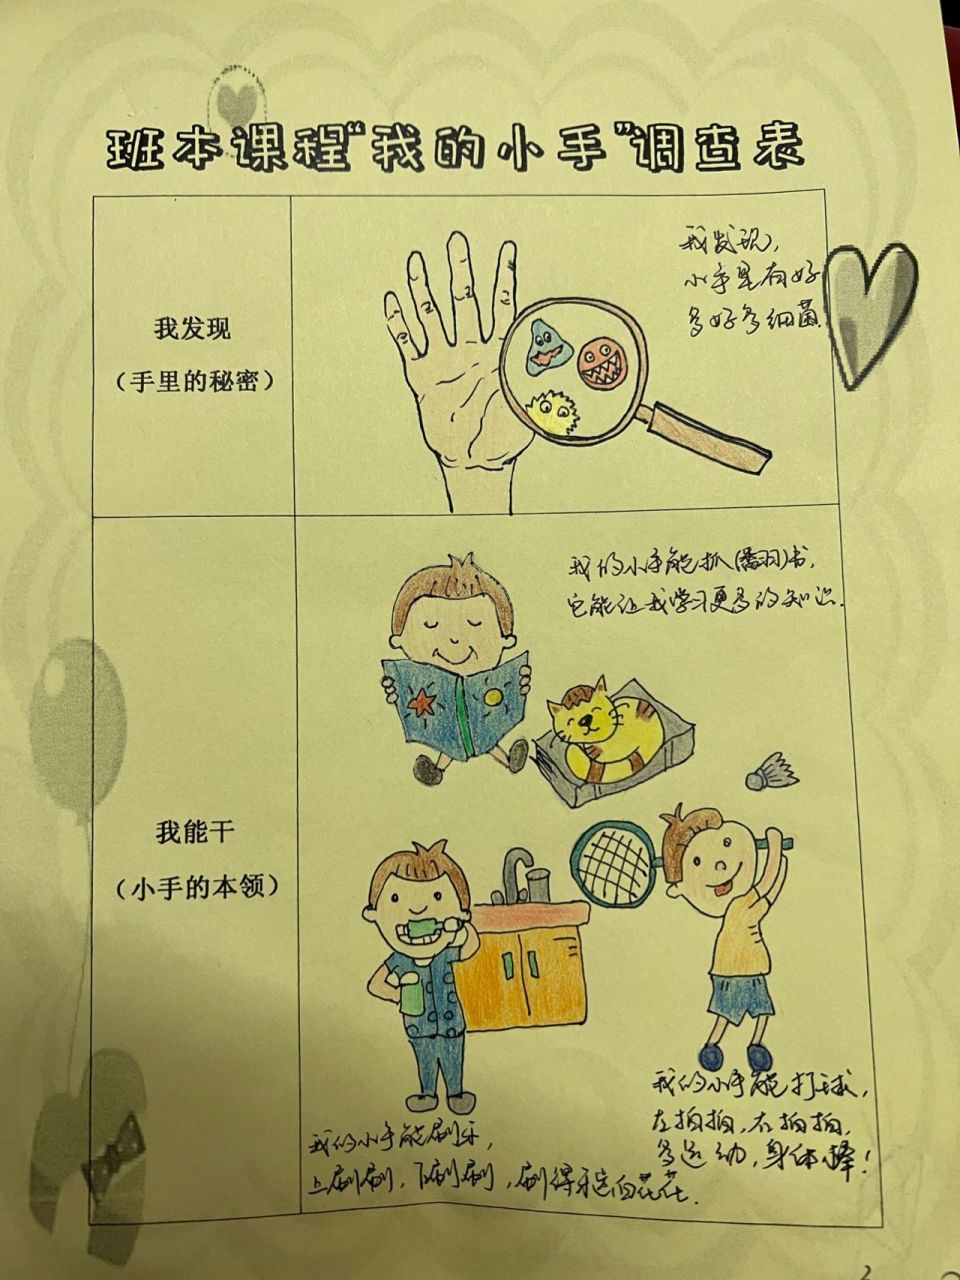 班本课程“我的小手”调查表
我发现
（手里的秘密）
我发现，
小手里有好
多好多细菌.
我能干
（小手的本领）
我的小手能抓(翻)书，
它能让我学习更多的知识.
我的小手能刷牙，
上刷刷，下刷刷，刷得牙齿白花花.
我的小手能打球，
左拍拍，右拍拍，
多运动，身体棒！